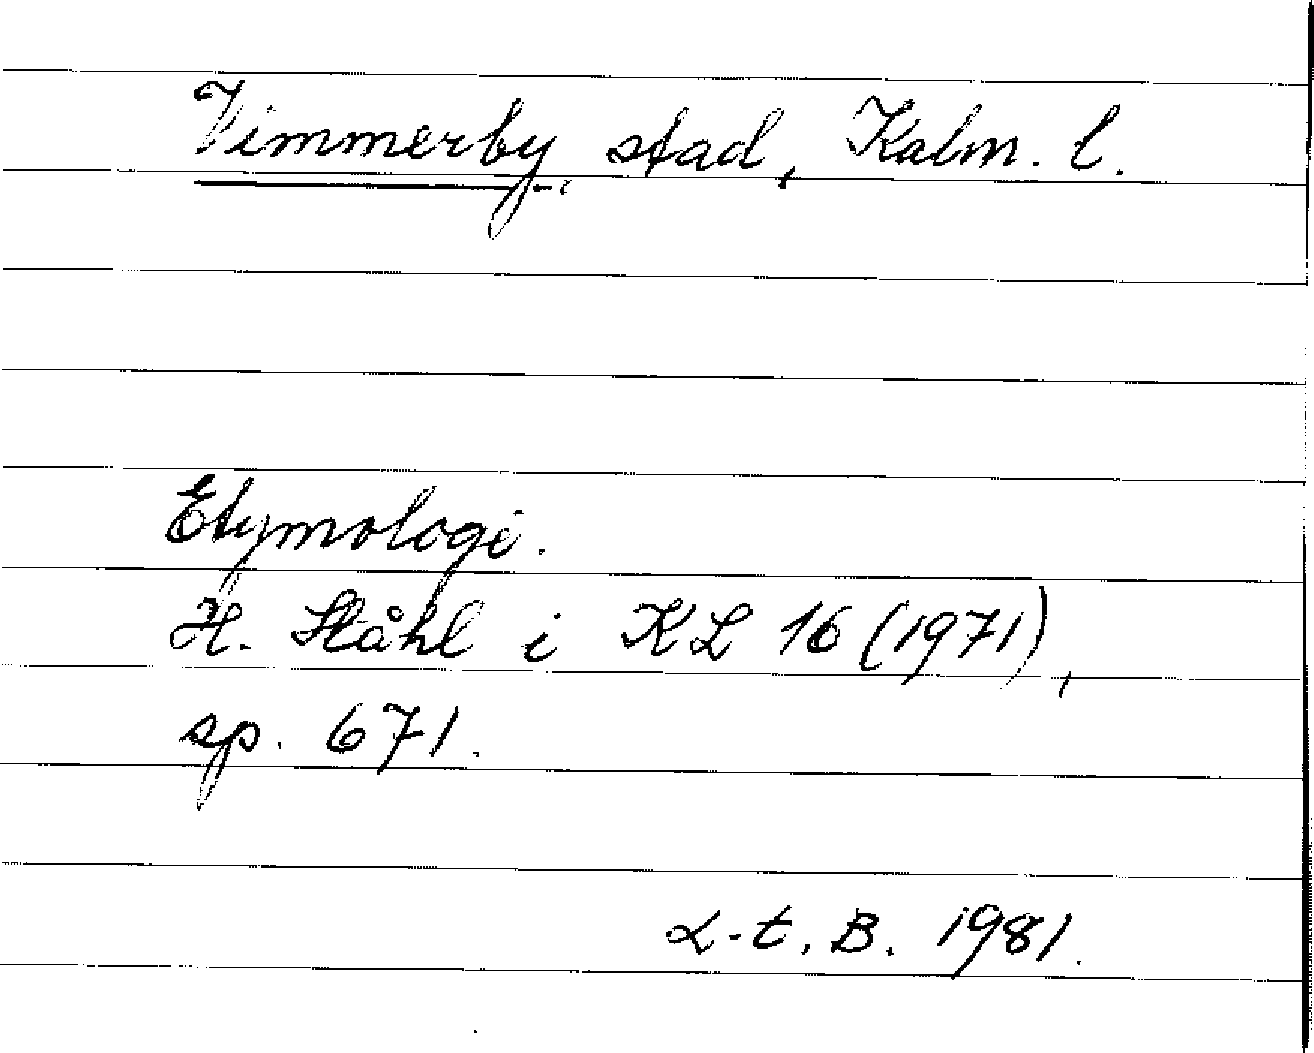 Vimmerby stad, Kalm. l.
Etymologi.
H. Ståhl i KL 16 (1971),
sp. 671.
L-t. B. 1981.